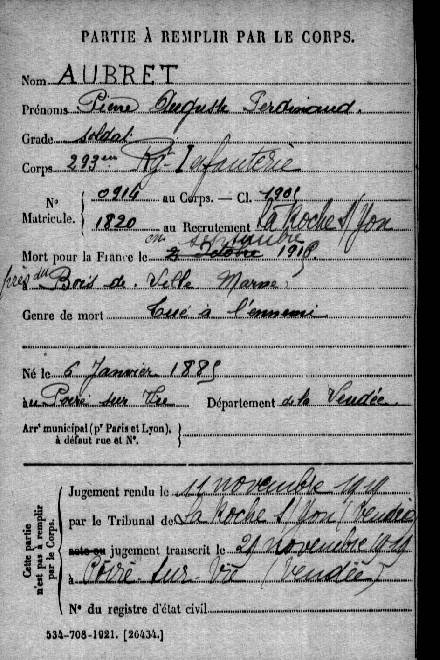 PARTIE À REMPLIR PAR LE CORPS.
Nom AUBRET
Prénoms Pierre Auguste Ferdinand.
Grade soldat
Corps 293em Rgt Infanterie
N° Matricule. { 0914 au Corps. — Cl. 1905
1820 au Recrutement la Roche s/ Yon
Mort pour la France le en septembre 2 octobre 1915
près du Bois de Ville Marne
Genre de mort Tué à l'ennemi
Né le 6 Janvier 1885
à au Poiré sur Vie Département de la Vendée.
Arrt municipal (pr Paris et Lyon), à défaut rue et N°. }
Cette partie n'est pas à remplir par le Corps.
Jugement rendu le 11 novembre 1919
par le Tribunal de La Roche s/ Yon (Vendée)
acte ou jugement transcrit le 29 novembre 1919
à Poiré sur Vie (Vendée)
N° du registre d'état civil
534-708-1921. [26434.]